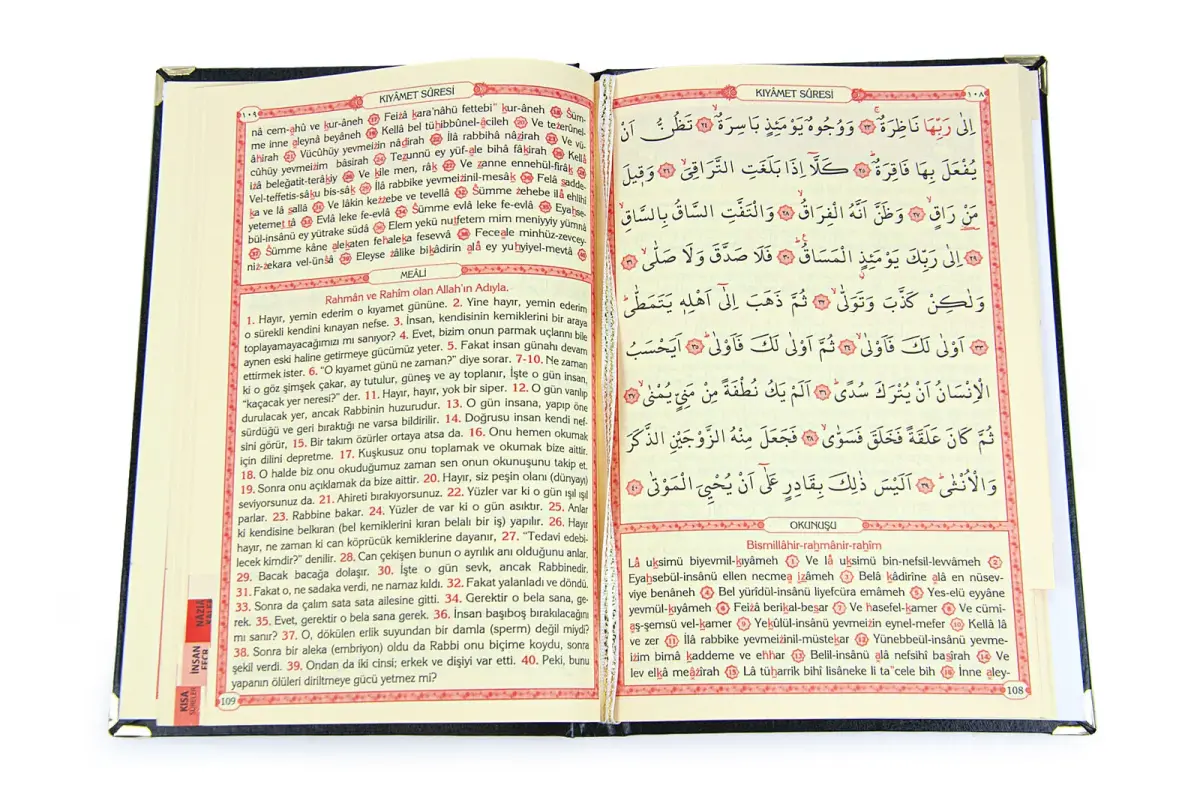 KIYÂMET SÛRESİ
١٠٨
اِلٰى رَبِّهَا نَاظِرَةٌۚ ﴿٢٣﴾ وَوُجُوهٌ يَوْمَئِذٍ بَاسِرَةٌۙ ﴿٢٤﴾ تَظُنُّ اَنْ
يُفْعَلَ بِهَا فَاقِرَةٌؕ ﴿٢٥﴾ كَلَّٓا اِذَا بَلَغَتِ التَّرَاقِيَۙ ﴿٢٦﴾ وَق۪يلَ
مَنْ رَاقٍۙ ﴿٢٧﴾ وَظَنَّ اَنَّهُ الْفِرَاقُۙ ﴿٢٨﴾ وَالْتَفَّتِ السَّاقُ بِالسَّاقِۙ
﴿٢٩﴾ اِلٰى رَبِّكَ يَوْمَئِذٍۨ الْمَسَاقُؕ ﴿٣٠﴾ فَلَا صَدَّقَ وَلَا صَلّٰىۙ ﴿٣١﴾
وَلٰكِنْ كَذَّبَ وَتَوَلّٰىۙ ﴿٣٢﴾ ثُمَّ ذَهَبَ اِلٰٓى اَهْلِه۪ يَتَمَطّٰىؕ
﴿٣٣﴾ اَوْلٰى لَكَ فَاَوْلٰىۙ ﴿٣٤﴾ ثُمَّ اَوْلٰى لَكَ فَاَوْلٰىؕ ﴿٣٥﴾ اَيَحْسَبُ
الْاِنْسَانُ اَنْ يُتْرَكَ سُدًىؕ ﴿٣٦﴾ اَلَمْ يَكُ نُطْفَةً مِنْ مَنِيٍّ يُمْنٰىۙ ﴿٣٧﴾
ثُمَّ كَانَ عَلَقَةً فَخَلَقَ فَسَوّٰىۙ ﴿٣٨﴾ فَجَعَلَ مِنْهُ الزَّوْجَيْنِ الذَّكَرَ
وَالْاُنْثٰىؕ ﴿٣٩﴾ اَلَيْسَ ذٰلِكَ بِقَادِرٍ عَلٰٓى اَنْ يُحْيِيَ الْمَوْتٰى ﴿٤٠﴾
OKUNUŞU
Bismillâhir-raḥmânir-raḥîm
Lâ uksimü biyevmil-kıyâmeh 1 Ve lâ uksimü bin-nefsil-levvâmeh 2
Eyahsebül-insânü ellen necmea ızâmeh 3 Belâ kâdirîne alâ en nüsev-
viye benâneh 4 Bel yürîdül-insânü liyefcüra emâmeh 5 Yes-elü eyyâne
yevmül-kıyâmeh 6 Feizâ berikal-besar 7 Ve hasefel-kamer 8 Ve cümi-
aş-şemsü vel-kamer 9 Yekûlül-insânü yevmeizin eynel-mefer 10 Kellâ lâ
ve zer 11 İlâ rabbike yevmeizinil-müstekar 12 Yünebbeül-insânü yevme-
izim bimâ kaddeme ve ehhar 13 Belil-insânü alâ nefsihî basîrah 14 Ve
lev elkâ meâzîrah 15 Lâ tüharrik bihî lisâneke li ta"cele bih 16 İnne aley-
108
١٠٩
KIYÂMET SÛRESİ
nâ cem-ahû ve kur-âneh 17 Feizâ kara'nâhü fettebi" kur-âneh 18 Süm-
me inne aleynâ beyâneh 19 Kellâ bel tühibbûnel-âcileh 20 Ve tezerûnel-
âhirah 21 Vücûhüy yevmeizin nâdirah 22 İlâ rabbihâ nâzirah 23 Ve vü-
cûhüy yevmeizim bâsirah 24 Tezunnü ey yüf-ale bihâ fâkirah 25 Kellâ
izâ beleğatit-terâkıy 26 Ve kîle men, râk 27 Ve zanne ennehül-firâk 28
Vel-teffetis-sâku bis-sâk 29 İlâ rabbike yevmeizinil-mesâk 30 Felâ sadde-
ka ve lâ sallâ 31 Ve lâkin kezzebe ve tevellâ 32 Sümme zehebe ilâ ehlihî
yetemettâ 33 Evlâ leke fe-evlâ 34 Sümme evlâ leke fe-evlâ 35 Eyahse-
bül-insânü ey yütrake südâ 36 Elem yekü nutfetem mim meniyyiy yümnâ
37 Sümme kâne alekaten fehaleka fesevvâ 38 Feceale minhüz-zevcey-
niz-zekara vel-ünsâ 39 Eleyse zâlike bikâdirin alâ ey yuhyiyel-mevtâ 40
MEÂLİ
Rahmân ve Rahîm olan Allah'ın Adıyla.
1. Hayır, yemin ederim o kıyamet gününe. 2. Yine hayır, yemin ederim
o sürekli kendini kınayan nefse. 3. İnsan, kendisinin kemiklerini bir araya
toplayamayacağımızı mı sanıyor? 4. Evet, bizim onun parmak uçlarını bile
aynen eski haline getirmeye gücümüz yeter. 5. Fakat insan günahı devam
ettirmek ister. 6. "O kıyamet günü ne zaman?" diye sorar. 7-10. Ne zaman
ki o göz şimşek çakar, ay tutulur, güneş ve ay toplanır, İşte o gün insan,
"kaçacak yer neresi?" der. 11. Hayır, hayır, yok bir siper. 12. O gün varılıp
durulacak yer, ancak Rabbinin huzurudur. 13. O gün insana, yapıp öne
sürdüğü ve geri bıraktığı ne varsa bildirilir. 14. Doğrusu insan kendi nef-
sini görür, 15. Bir takım özürler ortaya atsa da. 16. Onu hemen okumak
için dilini depretme. 17. Kuşkusuz onu toplamak ve okumak bize aittir.
18. O halde biz onu okuduğumuz zaman sen onun okunuşunu takip et.
19. Sonra onu açıklamak da bize aittir. 20. Hayır, siz peşin olanı (dünyayı)
seviyorsunuz da. 21. Ahireti bırakıyorsunuz. 22. Yüzler var ki o gün ışıl ışıl
parlar. 23. Rabbine bakar. 24. Yüzler de var ki o gün asıktır. 25. Anlar
ki kendisine belkıran (bel kemiklerini kıran belalı bir iş) yapılır. 26. Hayır
hayır, ne zaman ki can köprücük kemiklerine dayanır, 27. "Tedavi edebi-
lecek kimdir?" denilir. 28. Can çekişen bunun o ayrılık anı olduğunu anlar.
29. Bacak bacağa dolaşır. 30. İşte o gün sevk, ancak Rabbinedir.
31. Fakat o, ne sadaka verdi, ne namaz kıldı. 32. Fakat yalanladı ve döndü.
33. Sonra da çalım sata sata ailesine gitti. 34. Gerektir o bela sana, ge-
rek. 35. Evet, gerektir o bela sana gerek. 36. İnsan başıboş bırakılacağını
mı sanır? 37. O, dökülen erlik suyundan bir damla (sperm) değil miydi?
38. Sonra bir aleka (embriyon) oldu da Rabbi onu biçime koydu, sonra
şekil verdi. 39. Ondan da iki cinsi; erkek ve dişiyi var etti. 40. Peki, bunu
yapanın ölüleri diriltmeye gücü yetmez mi?
109
İNSAN
FECR
KISA
SÛRELER